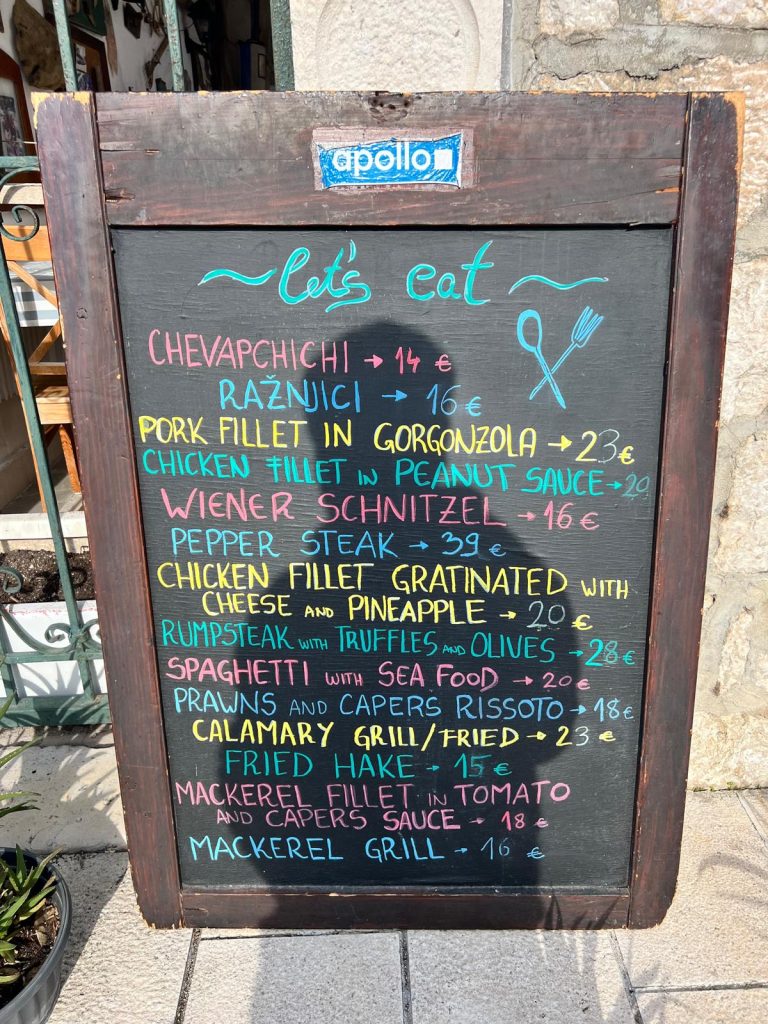 apollo
let's eat
CHEVAPCHICHI → 14 €
RAŽNJICI → 16 €
PORK FILLET IN GORGONZOLA → 23 €
CHICKEN FILLET IN PEANUT SAUCE → 20
WIENER SCHNITZEL → 16 €
PEPPER STEAK → 39 €
CHICKEN FILLET GRATINATED WITH
CHEESE AND PINEAPPLE → 20 €
RUMPSTEAK WITH TRUFFLES AND OLIVES → 28 €
SPAGHETTI WITH SEA FOOD → 20 €
PRAWNS AND CAPERS RISSOTO → 18 €
CALAMARY GRILL/FRIED → 23 €
FRIED HAKE → 15 €
MACKEREL FILLET IN TOMATO
AND CAPERS SAUCE → 18 €
MACKEREL GRILL → 16 €